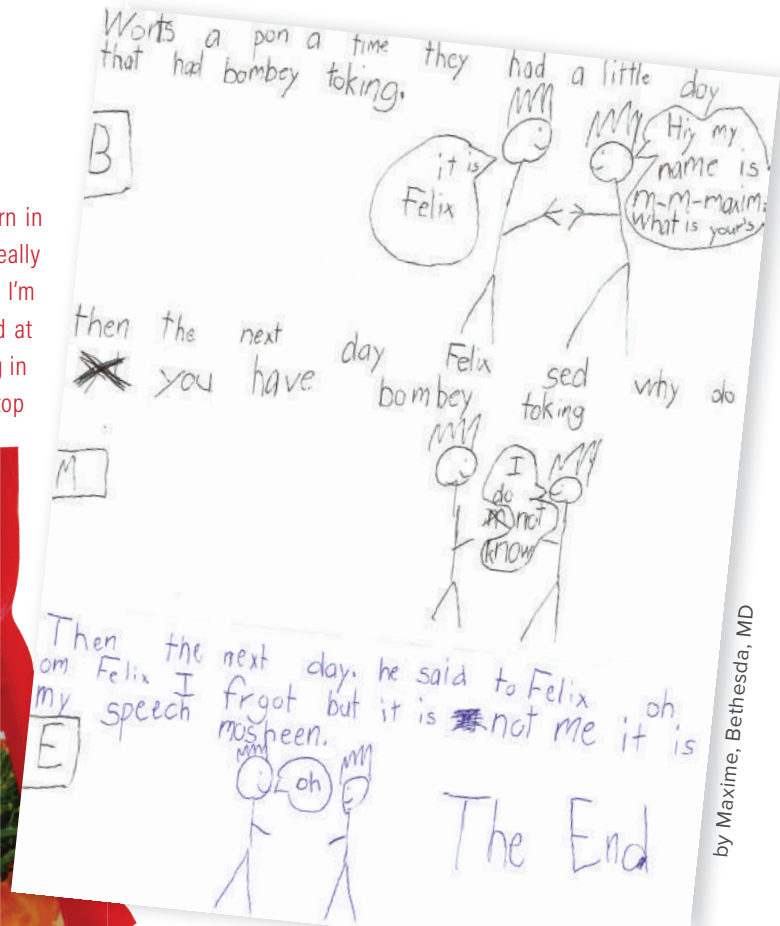 rn in
eally
I'm
d at
g in
top
Worts a pon a time they had a little doy
that had bombey toking.
B
it is
Felix
Hiy my
name is
m-m-maxim.
What is your's
then the next day Felix sed why do
you have bombey toking
M
I
do
not
know
Then the next day. he said to Felix oh
om Felix I frgot but it is not me it is
my speech mosheen.
E
oh
The End
by Maxime, Bethesda, MD